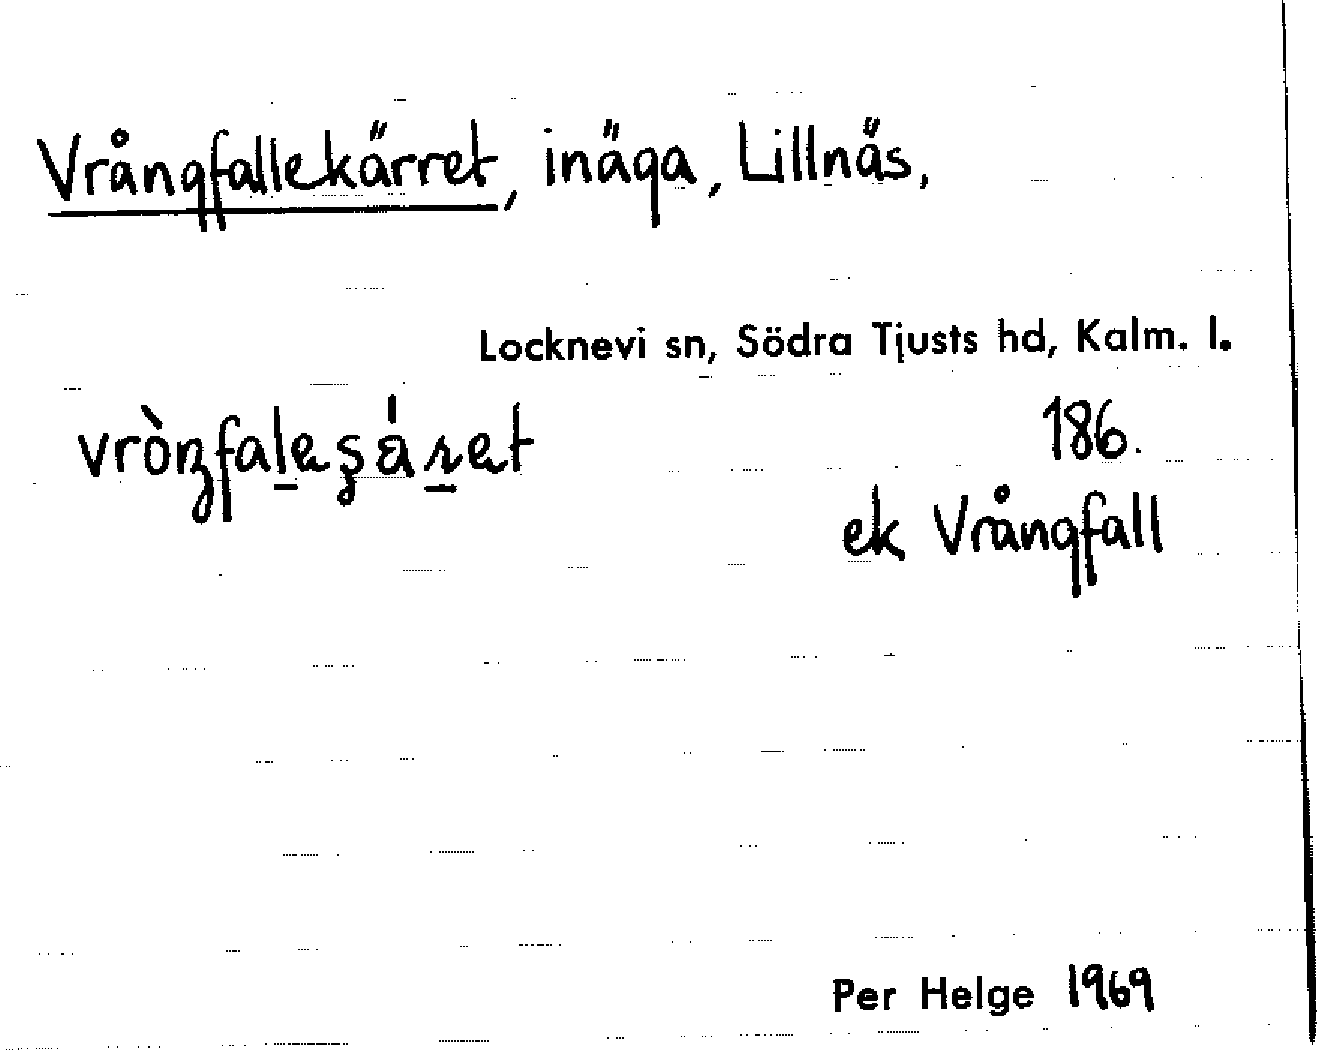 Vrångfallekärret, inäga, Lillnäs,
Locknevi sn, Södra Tjusts hd, Kalm. l.
186.
ek Vrångfall
Per Helge 1969